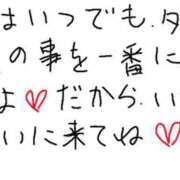 はいつでも.タ
の事を一番に
よ♡だから.い
いに来てね♡